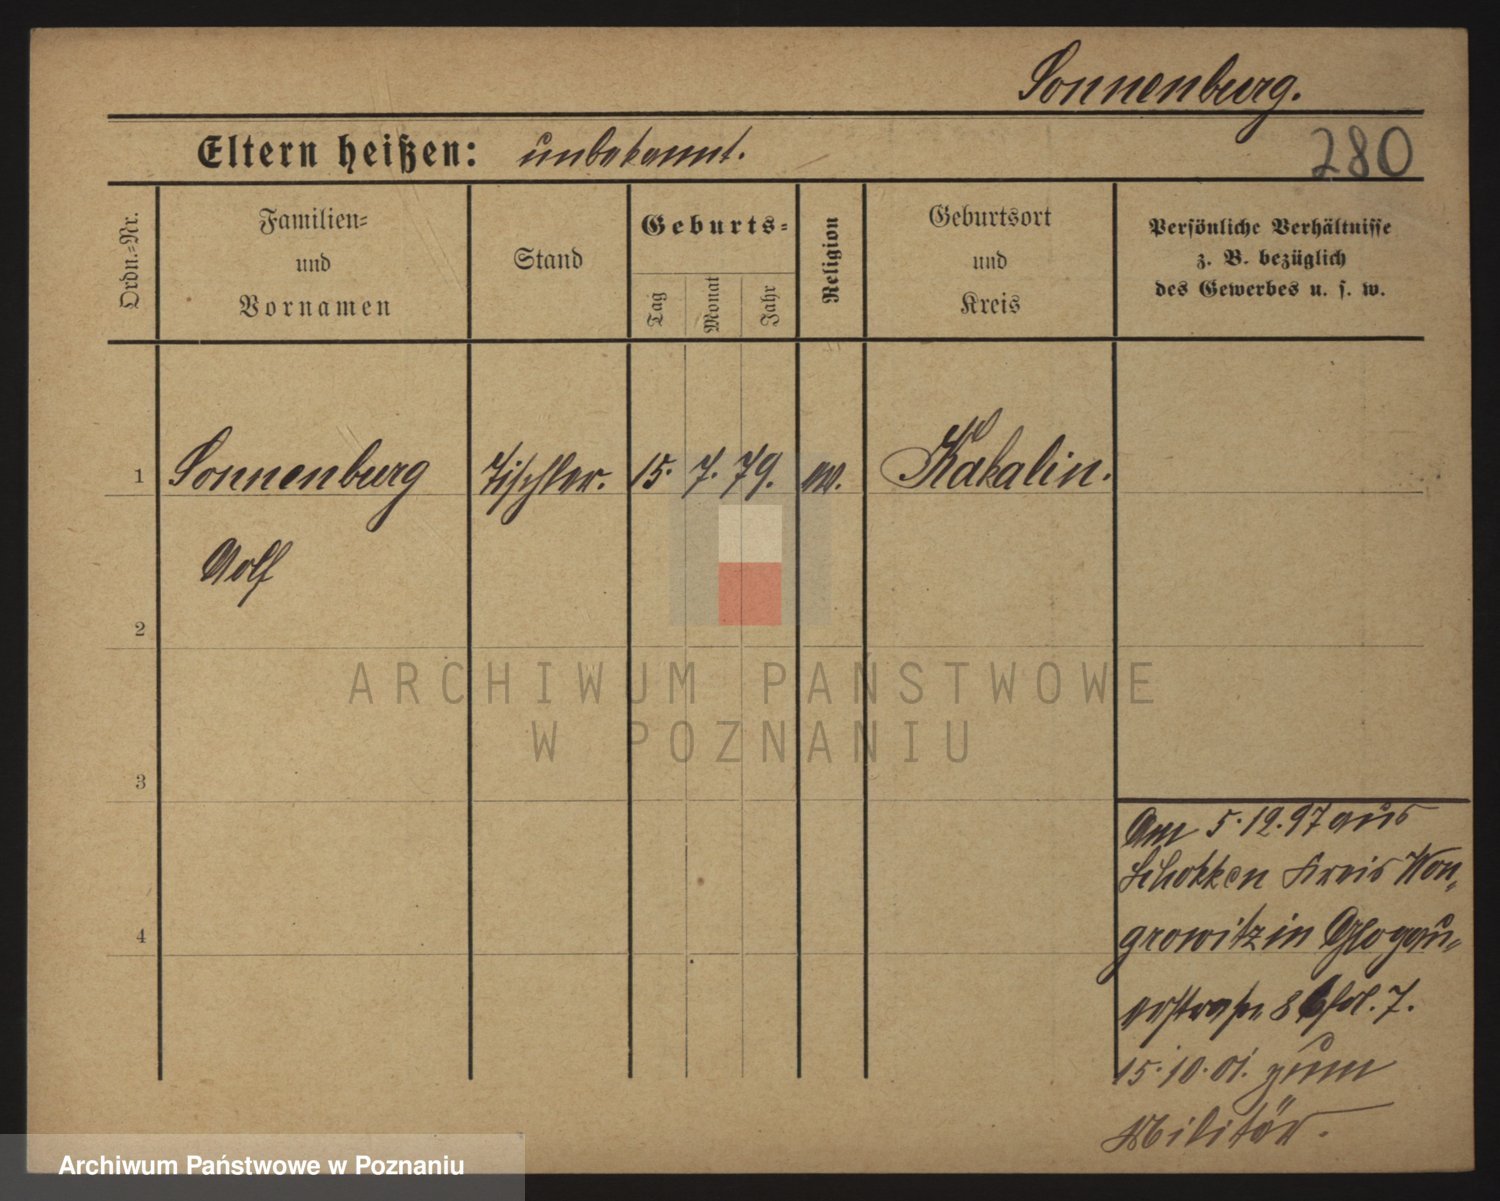 Sonnenburg.
Eltern heißen: unbekannt.
280
Ordn.-Nr.
Familien-
und
Vornamen
Stand
Geburts-
Tag
Monat
Jahr
Religion
Geburtsort
und
Kreis
Persönliche Verhältnisse
z. B. bezüglich
des Gewerbes u. s. w.
1 Sonnenburg Tischler. 15. 7. 79. ev. Kakalin.
2
3
4
Am 5.12.97 aus
Schokken Kreis Won-
growitz in Glogau-
erstraße 86
15.10.01. zum
Militär.
ARCHIWUM PAŃSTWOWE
W POZNANIU
Archiwum Państwowe w Poznaniu